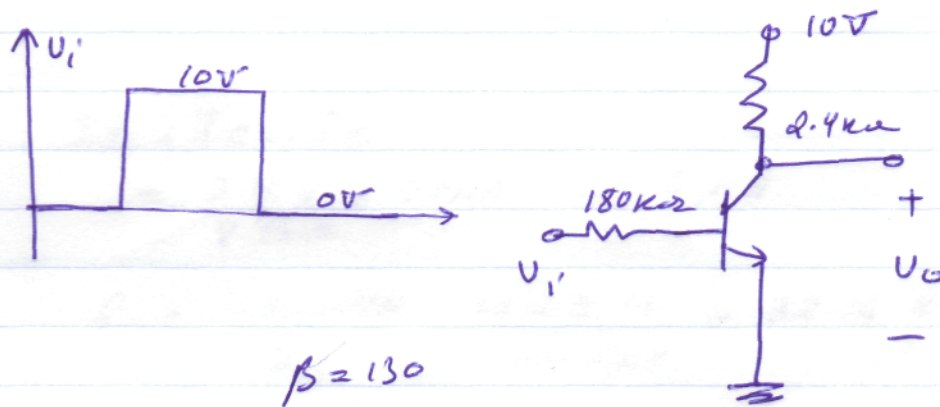 Ui
10V
0V
10V
2.4KΩ
180KΩ
Ui
+
Uo
−
β=130